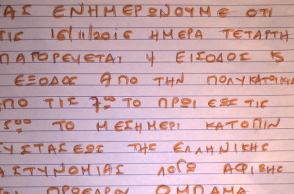 ΑΣ ΕΝΗΜΕΡΩΝΟΥΜΕ ΟΤΙ
ΤΙΣ 16/11/2016 ΗΜΕΡΑ ΤΕΤΑΡΤΗ
ΠΑΓΟΡΕΥΕΤΑΙ Η ΕΙΣΟΔΟΣ Κ
ΕΞΟΔΟΣ ΑΠΟ ΤΗΝ ΠΟΛΥΚΑΤΟΙΚΙΑ
ΠΟ ΤΙΣ 7⁰⁰ ΤΟ ΠΡΩΙ ΕΩΣ ΤΙΣ
5⁰⁰ ΤΟ ΜΕΣΗΜΕΡΙ ΚΑΤΟΠΙΝ
ΥΣΤΑΣΕΩΣ ΤΗΣ ΕΛΛΗΝΙΚΗΣ
ΑΣΤΥΝΟΜΙΑΣ ΛΟΓΩ ΑΦΙΞΗΣ
ΠΡΟΕΔΡΟΥ ΟΜΠΑΜΑ